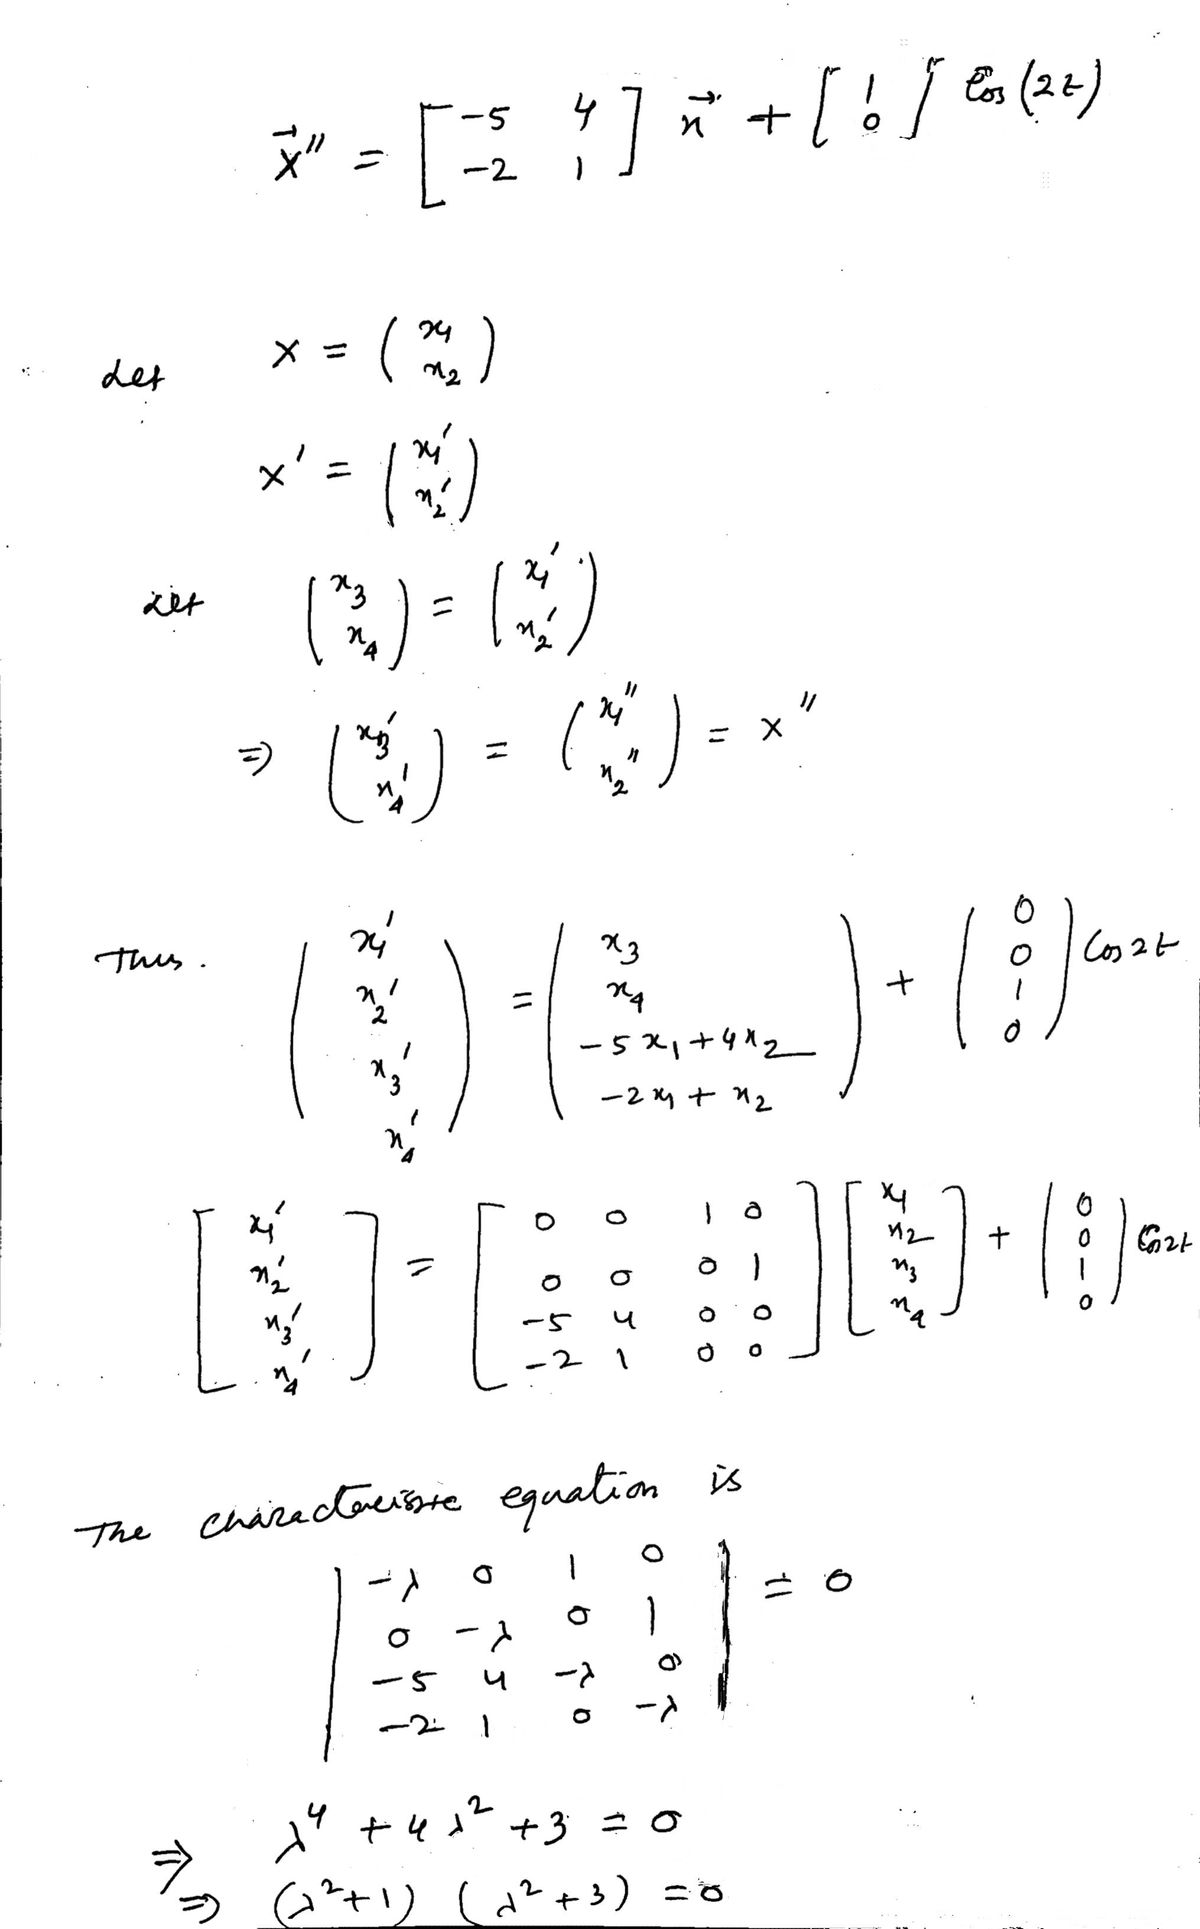 x⃗'' = [ -5 4 ; -2 1 ] x⃗ + [ 1 ; 0 ] Cos (2t)
Let x = ( x1 ; x2 )
x' = ( x1' ; x2' )
Let ( x3 ; x4 ) = ( x1' ; x2' )
⇒ ( x3' ; x4' ) = ( x1'' ; x2'' ) = x''
Thus. ( x1' ; x2' ; x3' ; x4' ) = ( x3 ; x4 ; -5x1+4x2 ; -2x1+x2 ) + ( 0 ; 0 ; 1 ; 0 ) Cos2t
[ x1' ; x2' ; x3' ; x4' ] = [ 0 0 1 0 ; 0 0 0 1 ; -5 4 0 0 ; -2 1 0 0 ] [ x1 ; x2 ; x3 ; x4 ] + ( 0 ; 0 ; 1 ; 0 ) Cos2t
The characteristic equation is
| -λ 0 1 0 ; 0 -λ 0 1 ; -5 4 -λ 0 ; -2 1 0 -λ | = 0
⇒ λ⁴ + 4λ² + 3 = 0
⇒ (λ²+1) (λ²+3) = 0